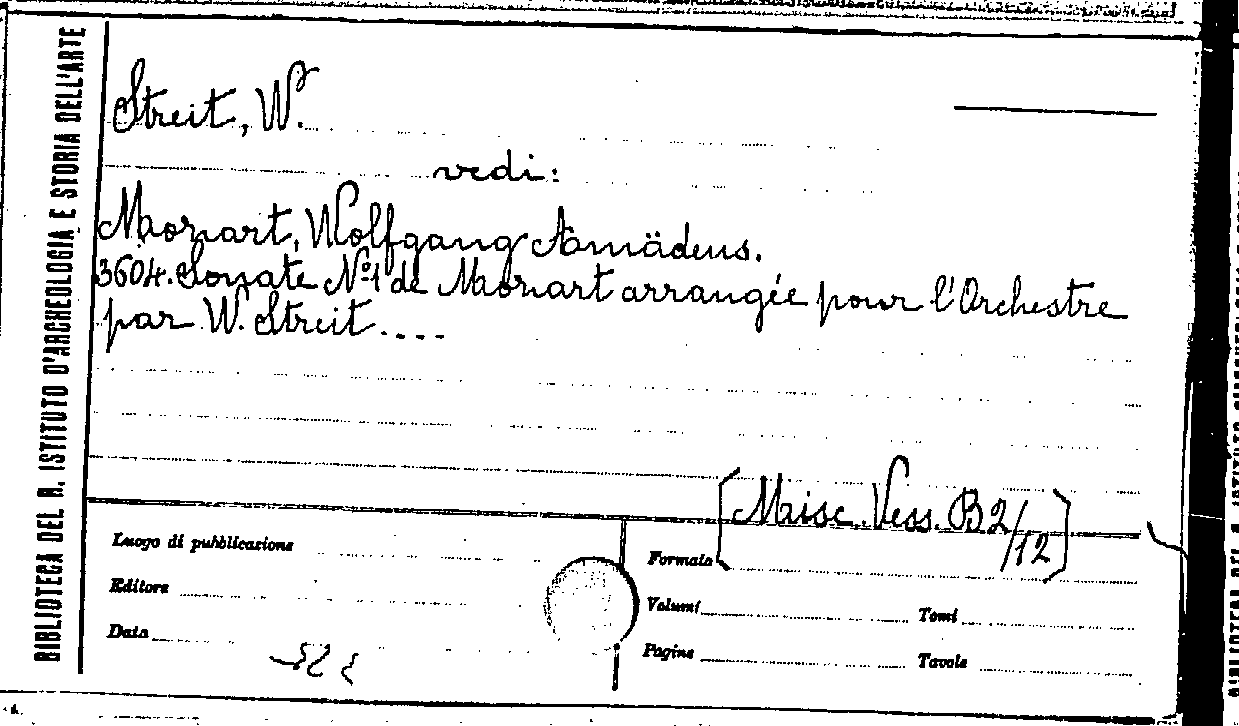 BIBLIOTECA DEL R. ISTITUTO D'ARCHEOLOGIA E STORIA DELL'ARTE
Streit, W.
vedi:
Mozart, Wolfgang Amädeus.
3604. Sonate Nº1 de Mozart arrangée pour l'Orchestre
par W. Streit....
[Misc. Vess. B2/12]
Luogo di pubblicazione
Editore
Data
Formato
Volumi
Tomi
Pagine
Tavole